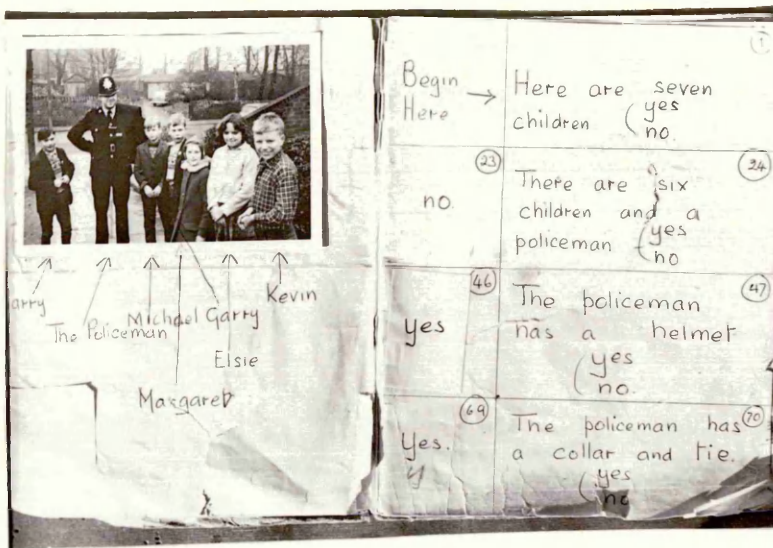 arry
The Policeman
Michael
Garry
Kevin
Elsie
Margaret
1
Begin
Here →
Here are seven
children (yes
no.
23
no.
24
There are six
children and a
policeman (yes
no
46
yes
47
The policeman
has a helmet
(yes
no.
69
Yes.
y
70
The policeman has
a collar and tie.
(yes
no